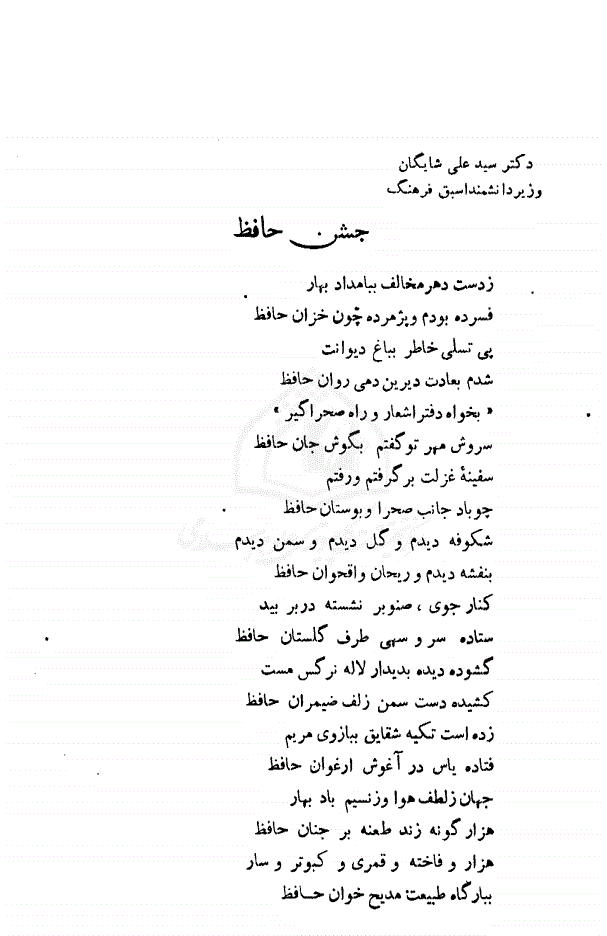 دکتر سید علی شایگان
وزیر دانشمند اسبق فرهنگ
جشن حافظ
زدست دهر مخالف ببامداد بهار
فسرده بودم و پژمرده چون خزان حافظ
پی تسلی خاطر بباغ دیوانت
شدم بعادت دیرین دمی روان حافظ
« بخواه دفتر اشعار و راه صحرا گیر »
سروش مهر تو گفتم بگوش جان حافظ
سفینهٔ غزلت برگرفتم و رفتم
چو باد جانب صحرا و بوستان حافظ
شکوفه دیدم و گل دیدم و سمن دیدم
بنفشه دیدم و ریحان و اقحوان حافظ
کنار جوی ، صنوبر نشسته در بر بید
ستاده سر و سهی طرف گلستان حافظ
گشوده دیده بدیدار لاله نرگس مست
کشیده دست سمن زلف ضیمران حافظ
زده است تکیه شقایق ببازوی مریم
فتاده یاس در آغوش ارغوان حافظ
جهان زلطف هوا وزنسیم باد بهار
هزار گونه زند طعنه بر جنان حافظ
هزار و فاخته و قمری و کبوتر و سار
ببارگاه طبیعت مدیح خوان حافظ